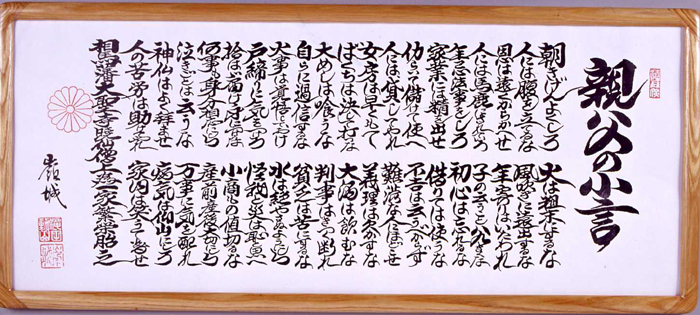 親父の小言
朝きげんよくしろ 火は粗末にするな
人には腹を立てるな 風吹きに遠出するな
恩は遠くからかへせ 年寄りはいたわれ
人には馬鹿にされていろ 子の云うこと八九はきくな
年忌法事をしろ 初心は忘れるな
家業には精を出せ 借りては使うな
働いて儲けて使へ 不吉は云うべからず
人には貸してやれ 難渋な人にほどこせ
女房は早くもて 義理は欠かすな
ばくちは決して打な 大酒は飲むな
大めしは喰うな 判事はきつく断れ
自らに過信するな 貧乏は苦にするな
大事は覚悟しておけ 水は絶やさぬようにしろ
戸締りに気をつけろ 怪我と災は恥と思へ
拾はば届け身につけるな 小商ものは値切るな
何事も身分相応にしろ 産前産後は大切にしろ
泣きごとは云うな 万事に気を配れ
神仏はよく拝ませ 病気は仰山にしろ
人の苦労は助けてやれ 家内は笑うて暮せ
相馬藩大聖寺暁仙僧上 為一家繁栄